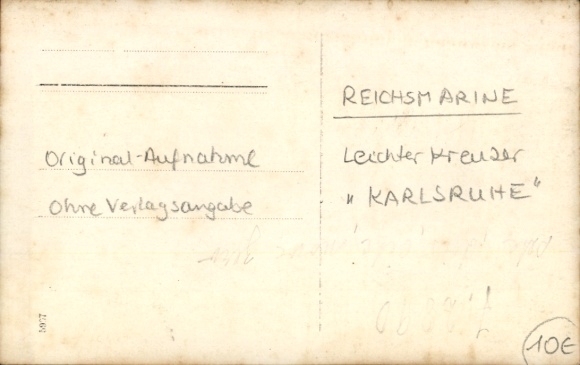 REICHSMARINE
Original-Aufnahme
Leichter Kreuzer
Ohne Verlagsangabe
"KARLSRUHE"
10€